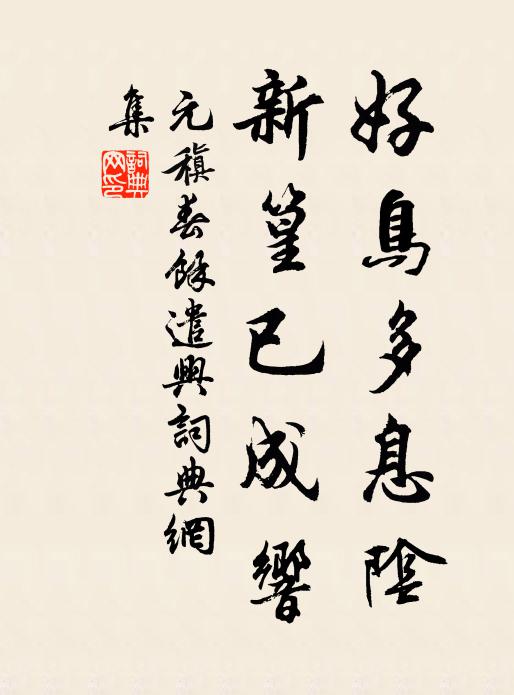 好鳥多息陰
新篁已成響
元稹春餘遣興詞典網
集
詞典
网印